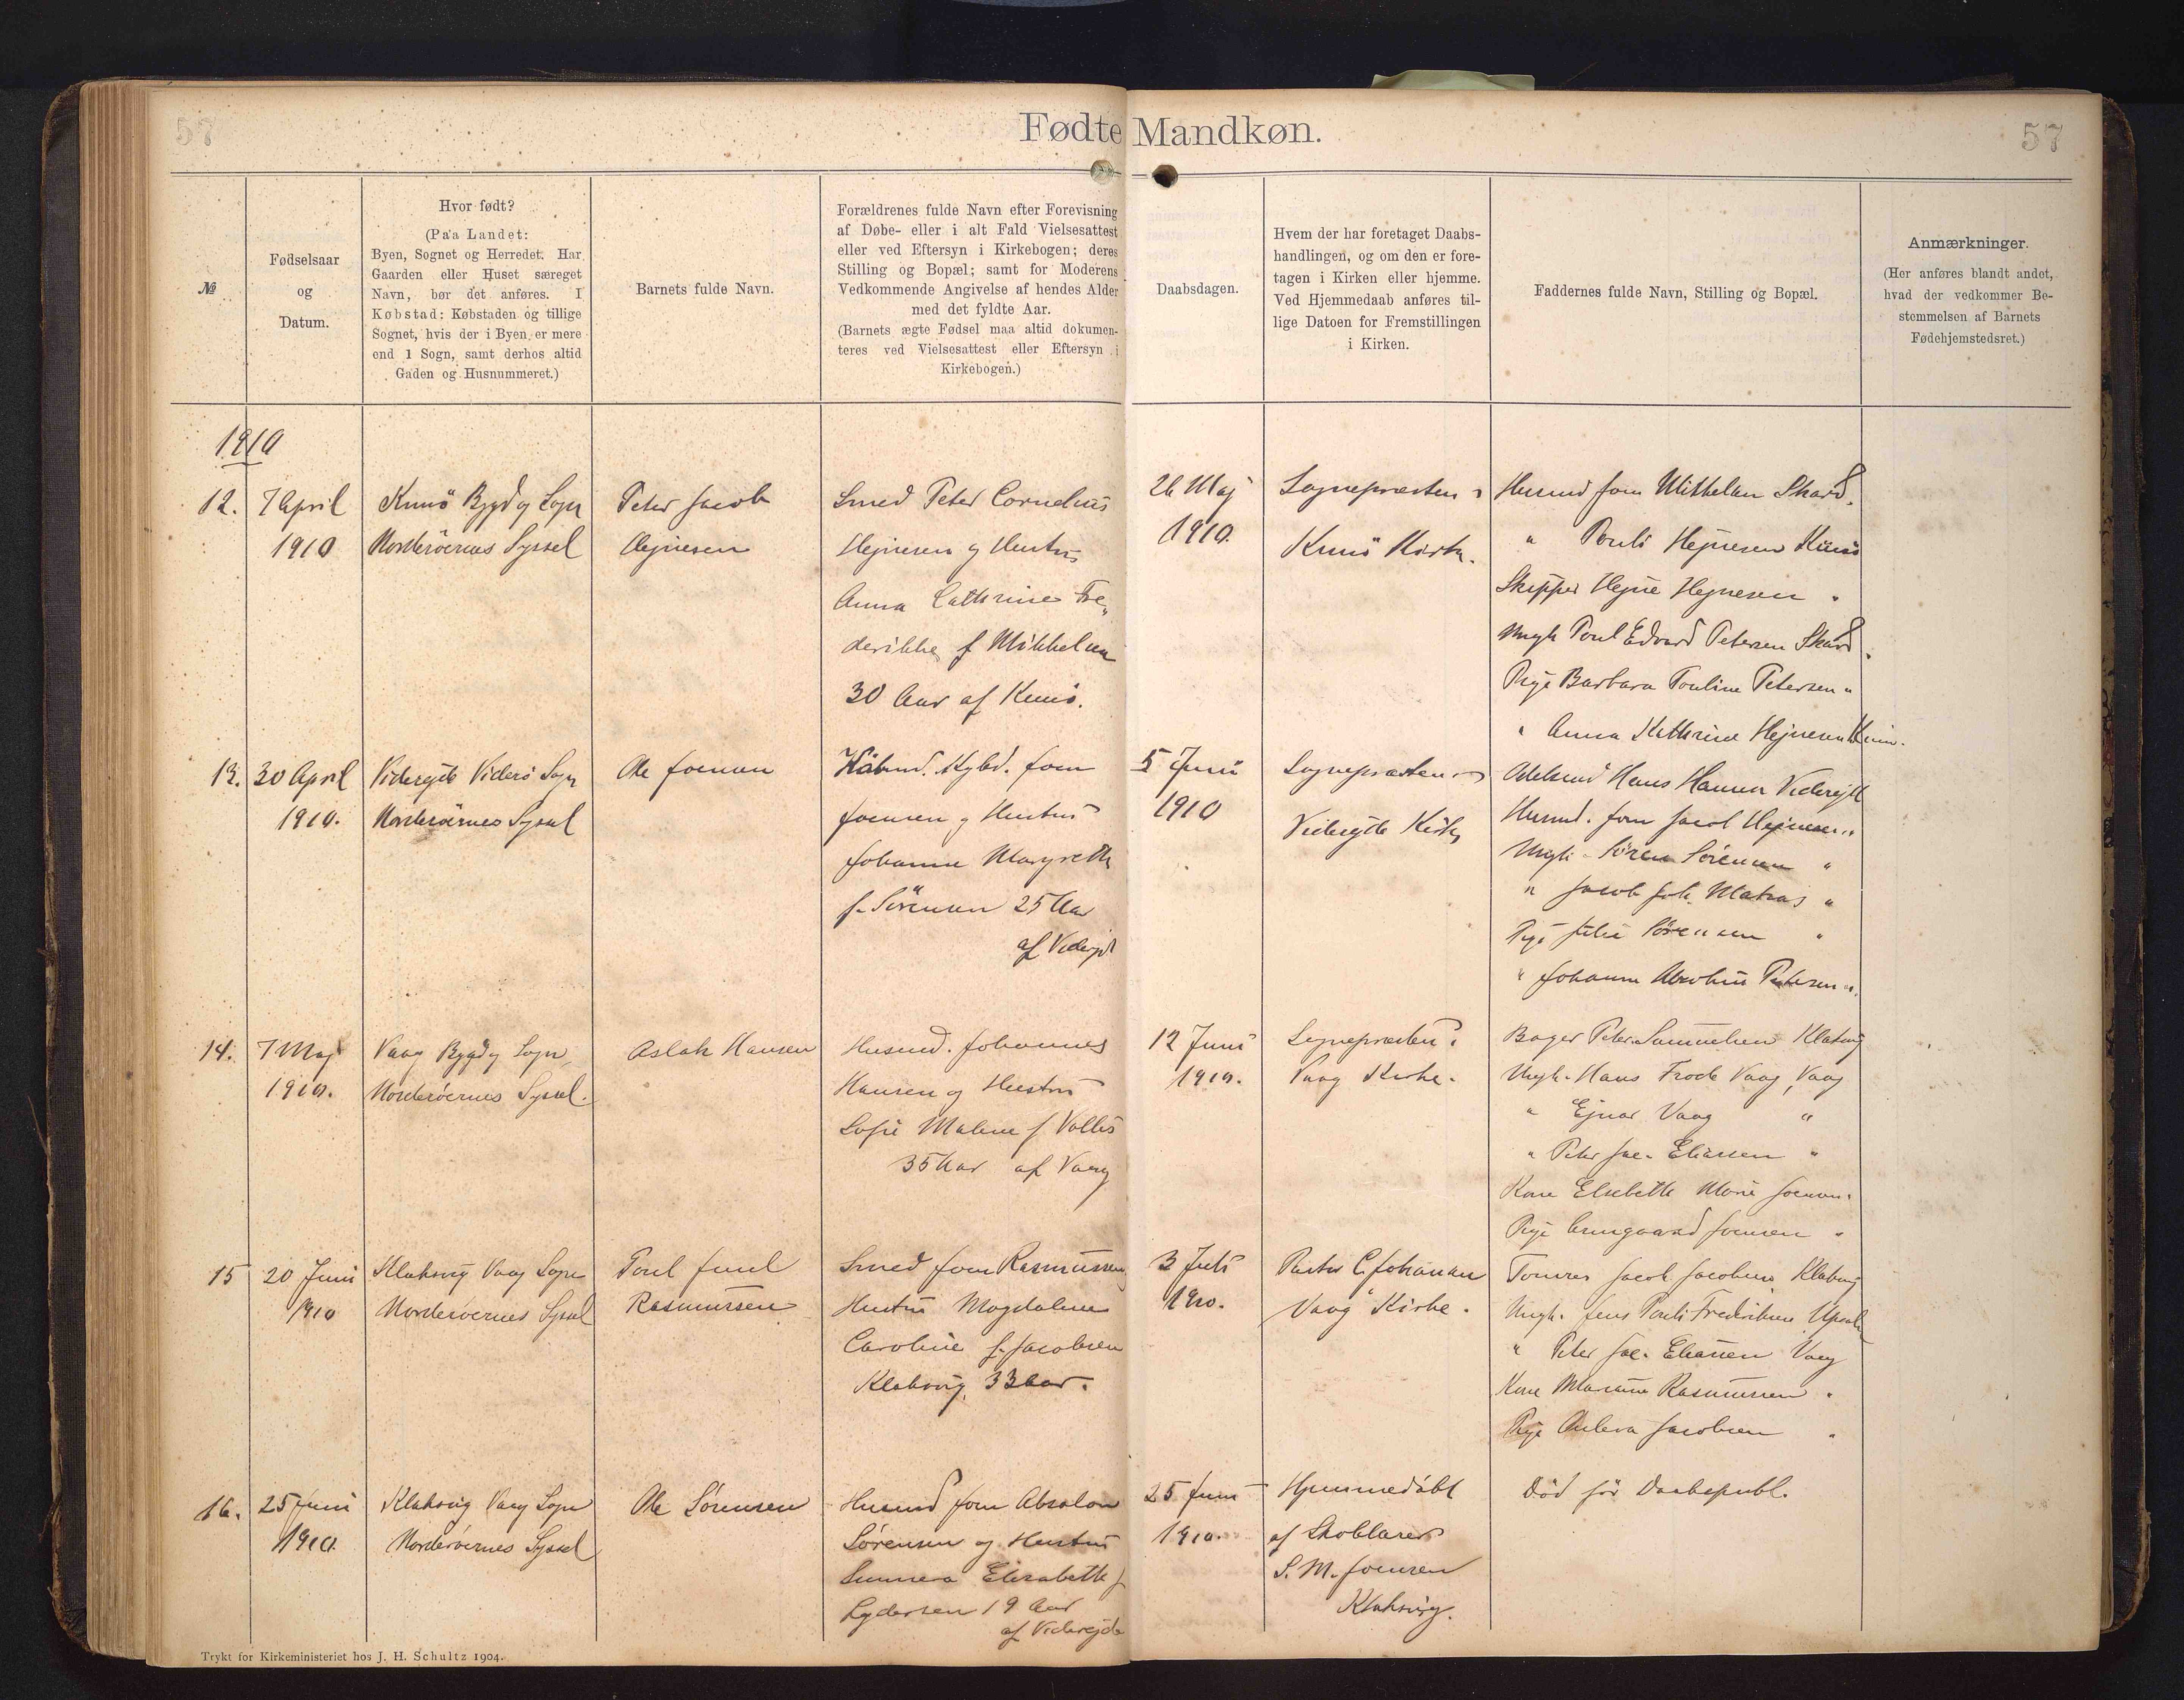 57
Fødte Mandkøn.
57
№
Fødselsaar
og
Datum.
Hvor født?
(Paa Landet:
Byen, Sognet og Herredet. Har
Gaarden eller Huset særeget
Navn, bør det anføres. I
Købstad: Købstaden og tillige
Sognet, hvis der i Byen er mere
end 1 Sogn, samt derhos altid
Gaden og Husnummeret.)
Barnets fulde Navn.
Forældrenes fulde Navn efter Forevisning
af Døbe- eller i alt Fald Vielsesattest
eller ved Eftersyn i Kirkebogen; deres
Stilling og Bopæl; samt for Moderens
Vedkommende Angivelse af hendes Alder
med det fyldte Aar.
(Barnets ægte Fødsel maa altid dokumen-
teres ved Vielsesattest eller Eftersyn i
Kirkebogen.)
Daabsdagen.
Hvem der har foretaget Daabs-
handlingen, og om den er fore-
tagen i Kirken eller hjemme.
Ved Hjemmedaab anføres til-
lige Datoen for Fremstillingen
i Kirken.
Faddernes fulde Navn, Stilling og Bopæl.
Anmærkninger.
(Her anføres blandt andet,
hvad der vedkommer Be-
stemmelsen af Barnets
Fødehjemstedsret.)
1910
12.
7 April
1910
Kunö Bygd og Sogn
Norderöernes Syssel
Peter Jacob
Hejnesen
Smed Peter Cornelius
Hejnesen og Hustru
Anna Cathrine Fre„
derikke f Mikkelsen
30 Aar af Kunö.
26 Maj
1910.
Sognepræsten i
Kunö Kirke.
Husmd Joen Mikkelsen Skard.
" Pouli Hejnesen Kunö
Skipper Hejne Hejnesen "
Ungk Poul Edvard Petersen Skard.
Pige Barbara Pouline Petersen "
" Anna Kathrine Hejnesen Kunö.
13.
30 April
1910.
Viderejde Viderö Sogn
Norderöernes Syssel
Ole Joensen
Joen
Joensen og Hustru
Johanne Margreth
f. Sörensen 25 Aar
af Viderejde
5 Juni
1910
Sognepræsten i
Viderejde Kirke
Odelsmd Hans Hansen Viderejde
Husmd. Joen Jacob Hejnesen "
Ungk. Sören Sörensen "
" Jacob Joh. Matras "
Pige Julie Sörensen "
" Johanne Petersen ".
14.
7 Maj
1910.
Vaag Bygd og Sogn,
Norderöernes Syssel.
Aslak Hansen
Husmd. Johannes
Hansen og Hustru
Sofie Malene f
35 Aar af Vaag
12 Juni
1910.
Sognepræsten i
Vaag Kirke.
Bager Peter Samuelsen Klaksvig
Ungk. Hans Frode Vaag, Vaag
" Ejnar Vaag "
" Peter Jac. Eliassen "
Kone Elsebeth Marie Joensen "
Pige Armgaard Joensen "
15
20 Juni
1910
Klaksvig Vaag Sogn
Norderöernes Syssel
Poul Juul
Rasmussen
Smed Joen Rasmussen
Hustru Magdalene
Caroline f. Jacobsen
Klaksvig, 33 Aar.
3 Juli
1910.
Pastor C. Johansen
Vaag Kirke.
Tömrer Jacob Jacobsen Klaksvig
Ungk. Jens Pouli Fredriksen
" Peter Jac. Eliassen Vaag
Kone Marianne Rasmussen "
Pige Jacobsen "
16.
25 Juni
1910.
Klaksvig Vaag Sogn
Norderöernes Syssel
Ole Sørensen
Husmd Joen Absalon
Sörensen og Hustru
Sunneva Elisabeth f
Lydersen 19 Aar
af Viderejde
25 Juni
1910.
Hjemmedöbt
af Skolelærer
S. M. Joensen
Klaksvig.
Död för Daabspubl.
Trykt for Kirkeministeriet hos J. H. Schultz 1904.